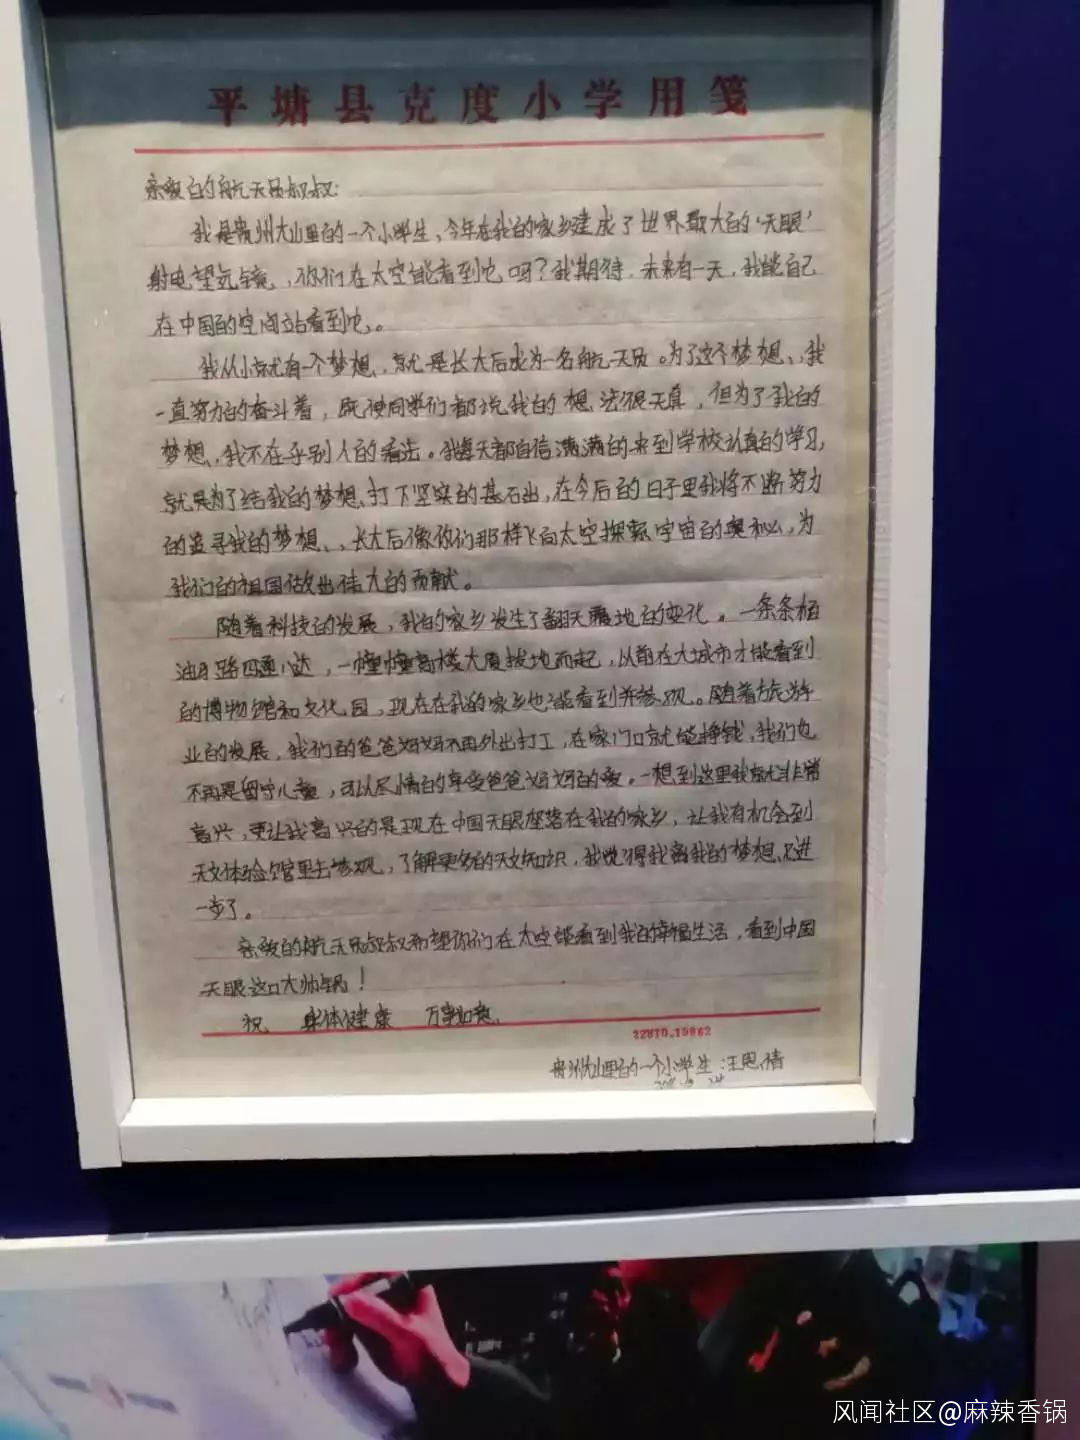 平塘县克度小学用笺
亲敬的航天员叔叔:
我是贵州大山里的一个小学生,今年在我的家乡建成了世界最大的“天眼”
射电望远镜,你们在太空能看到它吗?我期待,未来有一天,我能自己
在中国的空间站看到它。
我从小就有一个梦想,就是长大后成为一名航天员。为了这个梦想,我
一直努力的奋斗着,既使同学们都说我的想法很天真,但为了我的
梦想,我不在乎别人的看法。我每天都自信满满的来到学校认真的学习,
就是为了给我的梦想打下坚实的基石出,在今后的日子里我将不断努力
的追寻我的梦想,长大后像你们那样飞向太空探索宇宙的奥秘,为
我们的祖国做出伟大的贡献。
随着科技的发展,我的家乡发生了翻天覆地的变化。一条条柏
油马路四通八达,一幢幢高楼大厦拔地而起,以前在大城市才能看到
的博物馆和文化园,现在在我的家乡也能看到并参观。随着旅游
业的发展,我们的爸爸妈妈不再外出打工,在家门口就能挣钱,我们也
不再是留守儿童,可以尽情的享受爸爸妈妈的爱。一想到这里我就非常
高兴,更让我高兴的是现在中国天眼座落在我的家乡,让我有机会到
天文体验馆里去参观,了解更多的天文知识,我觉得我离我的梦想又进
一步了。
亲敬的航天员叔叔希望你们在太空能看到我的幸福生活,看到中国
天眼这口大帅锅!
祝 身体健康 万事如意
22810.19862
贵州大山里的一个小学生:汪恩倩
风闻社区@麻辣香锅